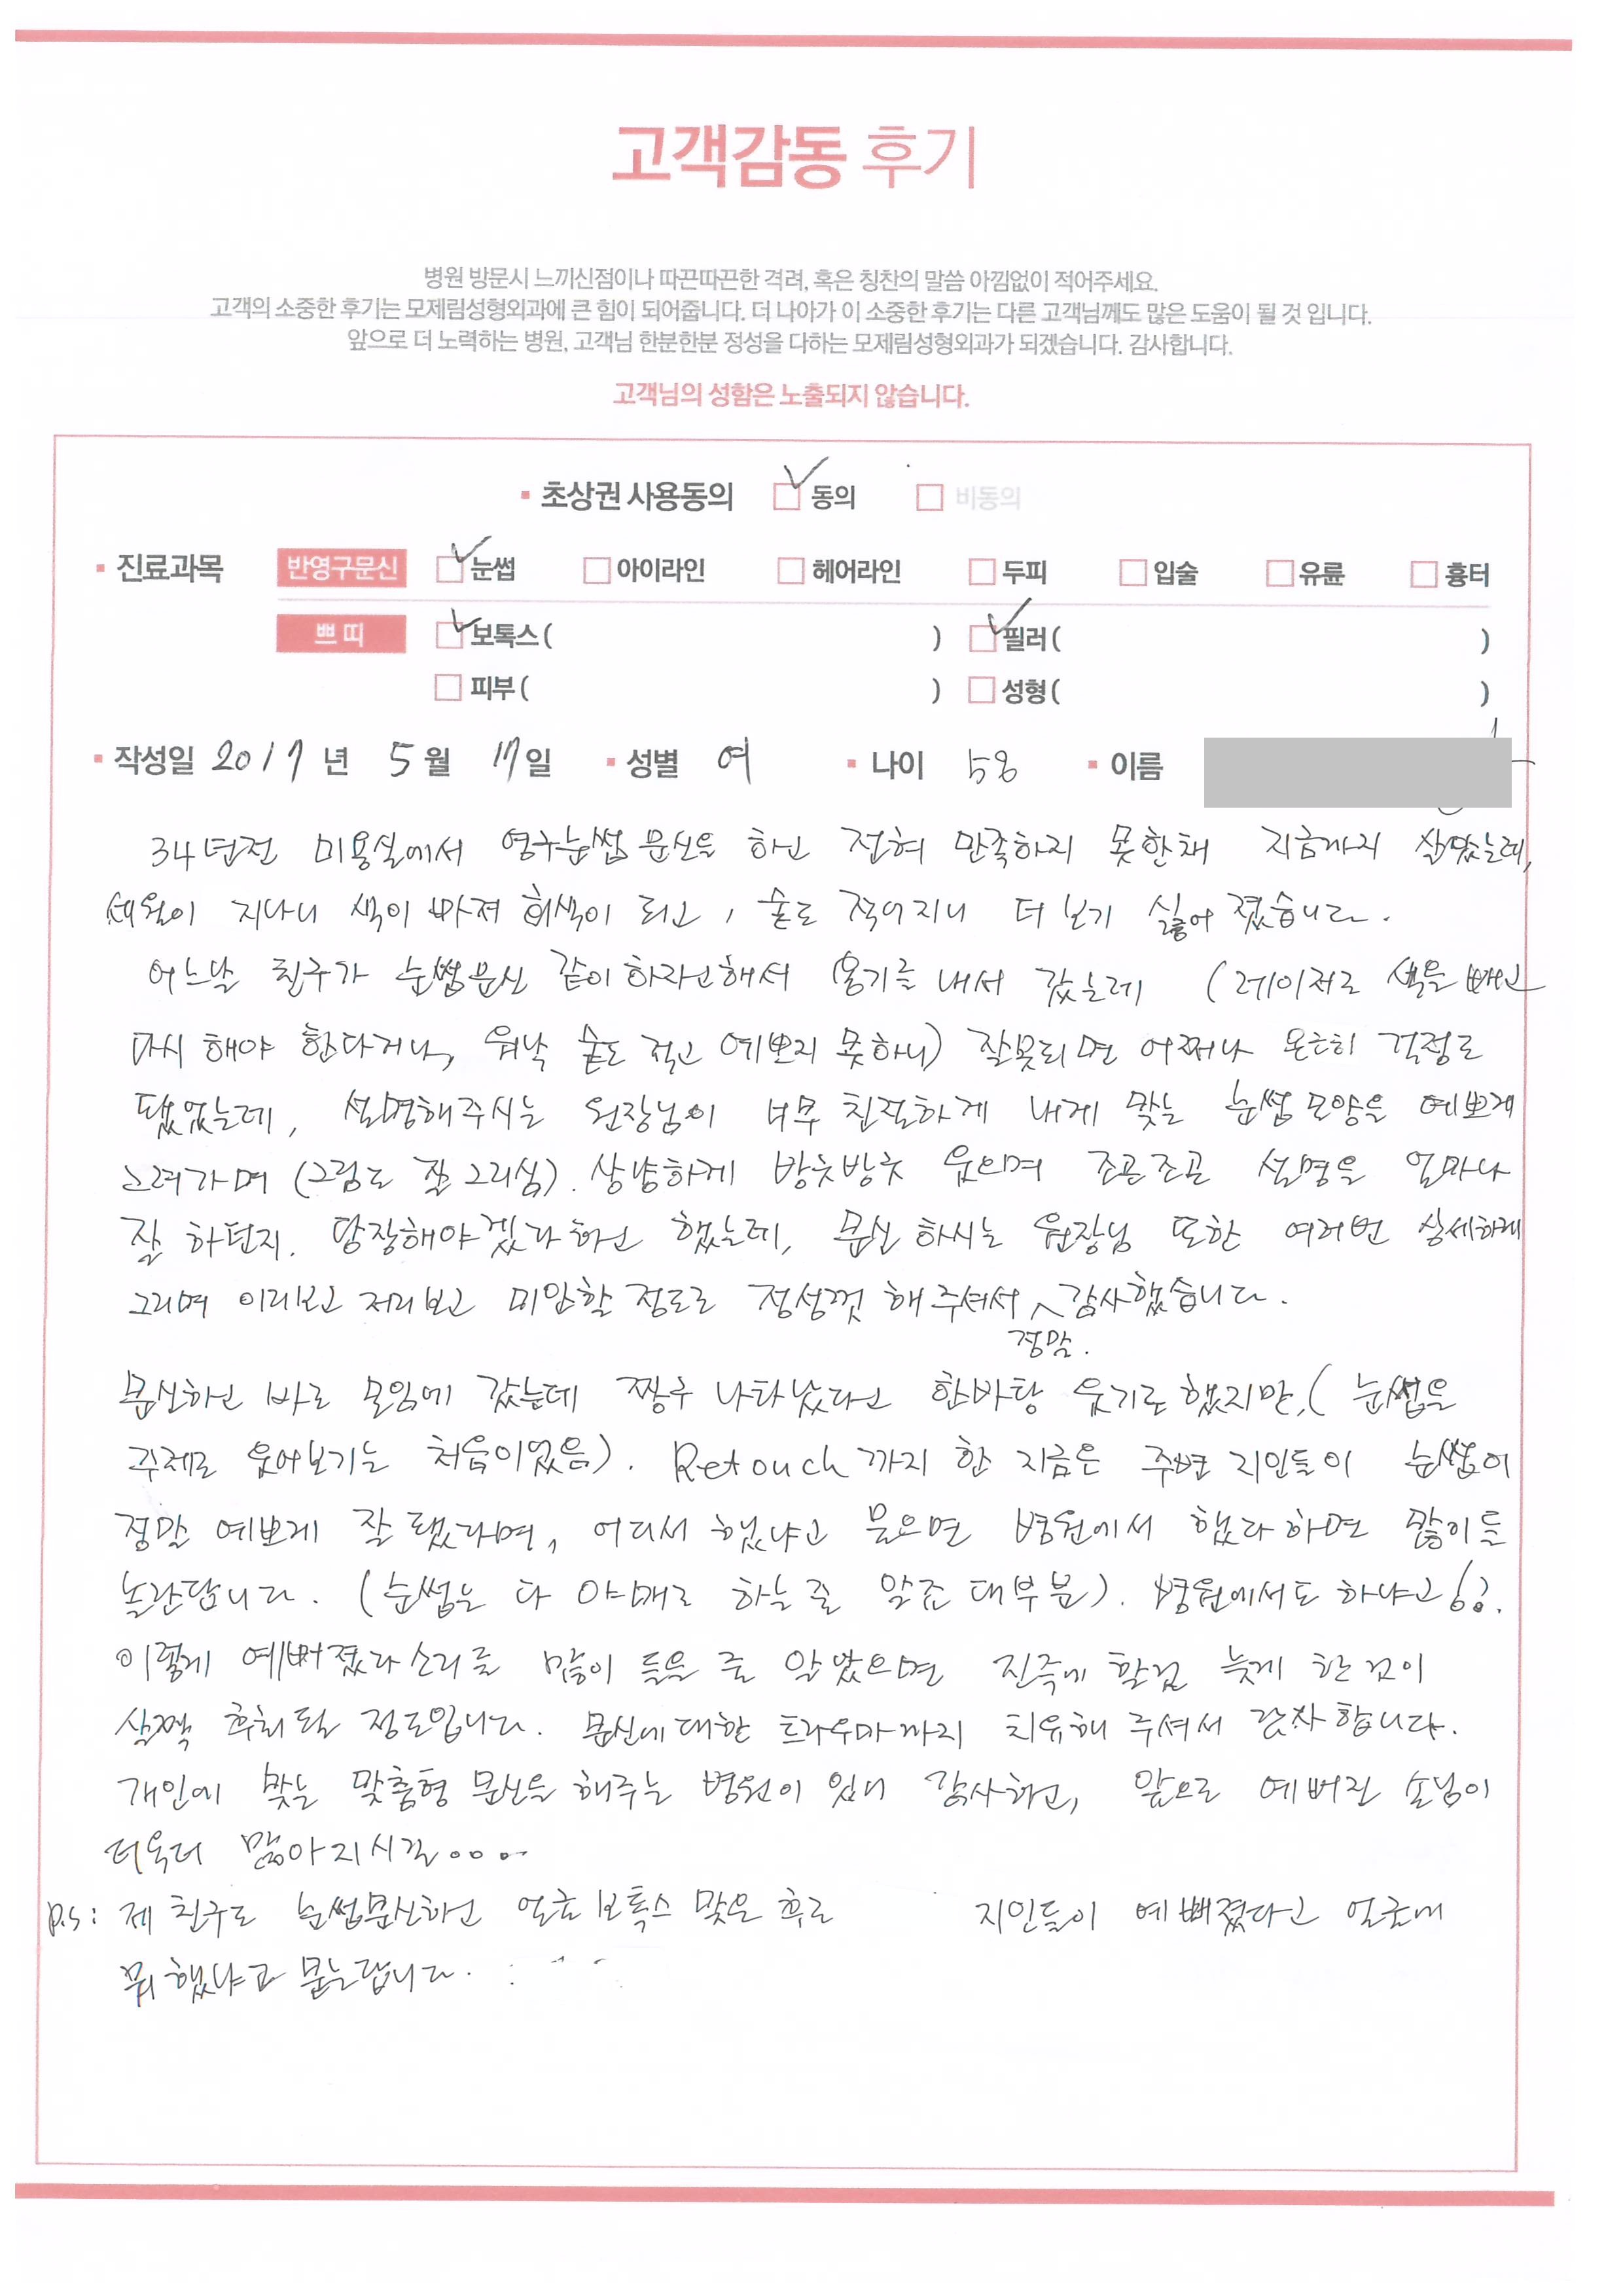 고객감동 후기
병원 방문시 느끼신점이나 따끈따끈한 격려, 혹은 칭찬의 말씀 아낌없이 적어주세요.
고객의 소중한 후기는 모제림성형외과에 큰 힘이 되어줍니다. 더 나아가 이 소중한 후기는 다른 고객님께도 많은 도움이 될 것 입니다.
앞으로 더 노력하는 병원, 고객님 한분한분 정성을 다하는 모제림성형외과가 되겠습니다. 감사합니다.
고객님의 성함은 노출되지 않습니다.
초상권 사용동의 동의 비동의
진료과목 반영구문신 눈썹 아이라인 헤어라인 두피 입술 유륜 흉터
쁘띠 보톡스 ( ) 필러 ( )
피부 ( ) 성형 ( )
작성일 2017 년 5 월 17 일 성별 여 나이 58 이름
34년전 미용실에서 영구눈썹 문신을 하고 전혀 만족하지 못한채 지금까지 살았는데,
세월이 지나니 색이 바져 회색이 되고, 숱도 적어지니 더 보기 싫어 졌습니다.
어느날 친구가 눈썹문신 같이하자고해서 용기를 내서 갔는데 (레이저로 색을 빼고
다시 해야 한다거나, 워낙 숱도 적고 예쁘지 못하니) 잘못되면 어쩌나 은근히 걱정도
됐었는데, 설명해주시는 원장님이 너무 친절하게 내게 맞는 눈썹모양을 예쁘게
그려가며 (그림도 잘 그리심). 상냥하게 방긋방긋 웃으며 조곤조곤 설명을 얼마나
잘 하던지. 당장해야겠다하고 했는데, 문신 하시는 원장님 또한 여러번 상세하게
그리며 이리보고 저리보고 미안할 정도로 정성껏 해주셔서 정말 감사했습니다.
문신하고 바로 모임에 갔는데 짱구 나타났다고 한바탕 웃기도했지만, (눈썹을
주제로 웃어보기는 처음이었음). Retouch까지 한 지금은 주변 지인들이 눈썹이
정말 예쁘게 잘 됐다며, 어디서 했냐고 물으면 병원에서 했다하면 많이들
놀란답니다. (눈썹은 다 야매로 하는줄 알죠 대부분). 병원에서도 하냐고!?.
이렇게 예뻐졌다소리를 많이 들을 줄 알았으면 진즉에 할걸 늦게 한것이
살짝 후회될 정도입니다. 문신에대한 트라우마까지 치유해 주셔서 감사합니다.
개인에 맞는 맞춤형 문신을 해주는 병원이 있어 감사하고, 앞으로 예뻐진 손님이
더욱더 많아지시길....
P.S: 제 친구도 눈썹문신하고 얼굴 보톡스 맞은 후로 지인들이 예뻐졌다고 얼굴에
뭐했냐고 묻는답니다.